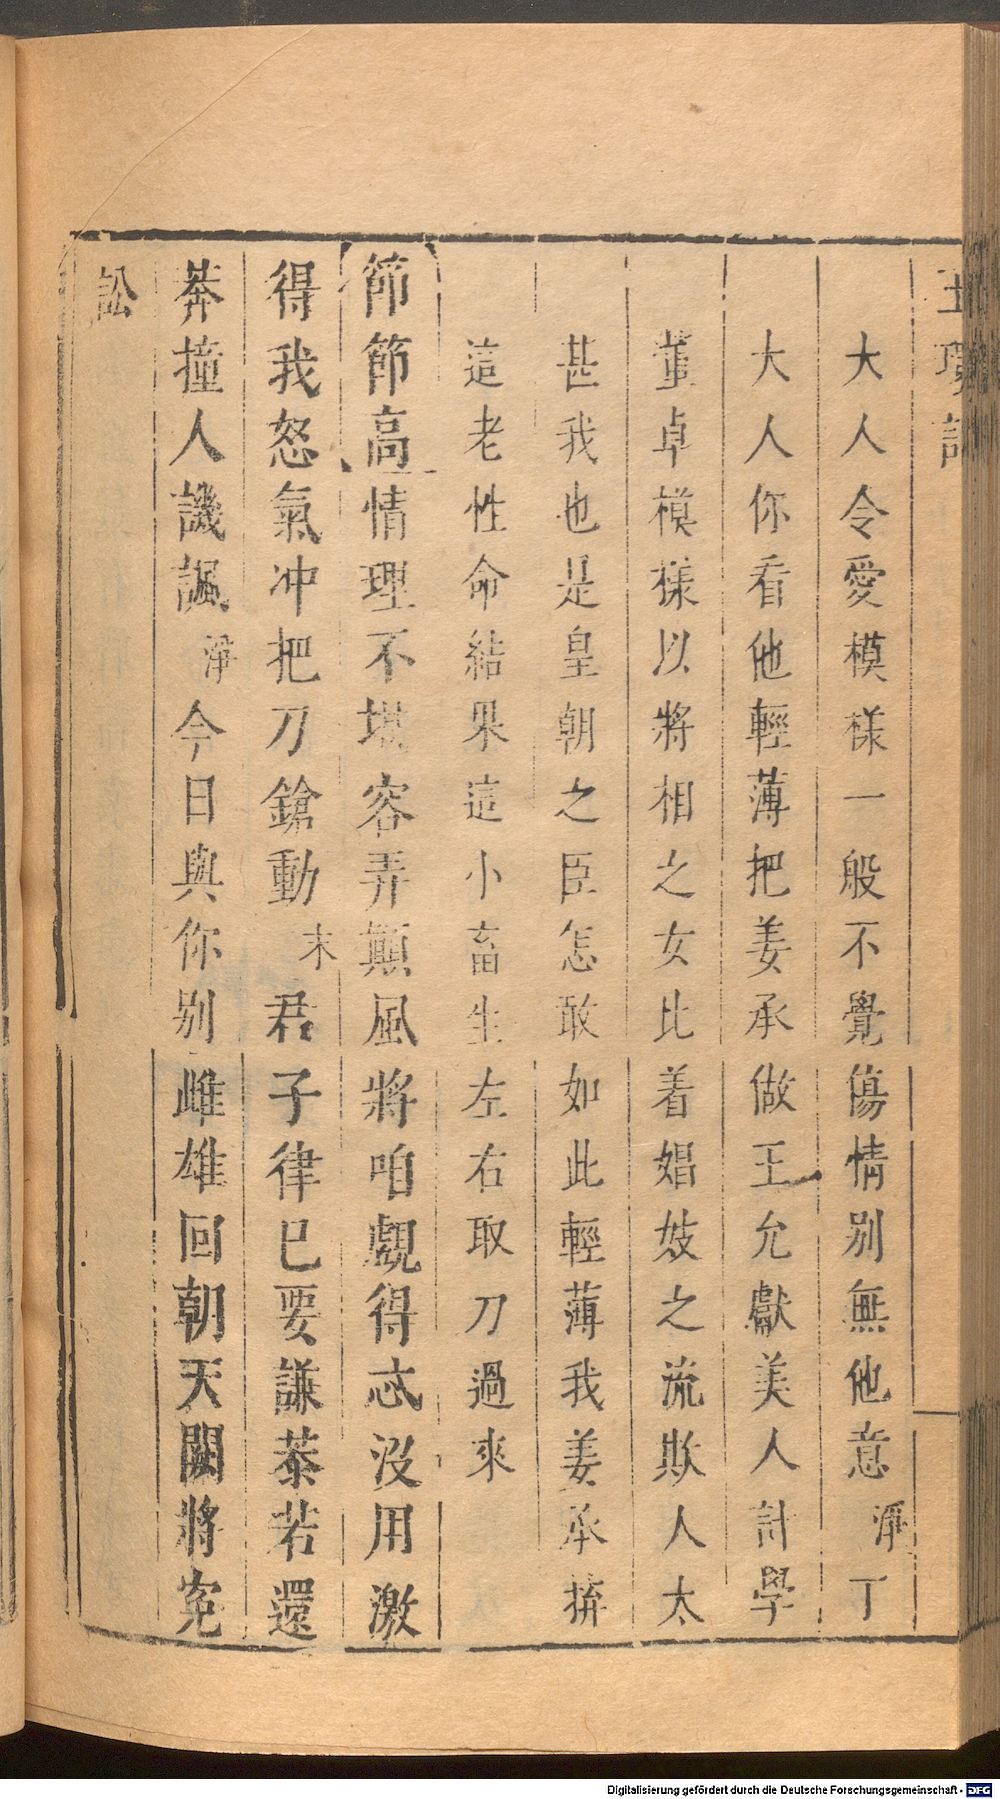 玉環記
大人令愛模樣一般不覺傷情别無他意淨丁
大人你看他輕薄把姜承做王允獻美人計學
董卓模樣以將相之女比着娼妓之流欺人太
甚我也是皇朝之臣怎敢如此輕薄我姜承拚
這老性命結果這小畜生左右取刀過來
節節高情理不堪容弄顛風將咱覷得忒沒用激
得我怒氣冲把刀鎗動末君子律已要謙恭若還
莽撞人譏諷淨今日與你别雌雄回朝天闕將寃
訟
Digitalisierung gefördert durch die Deutsche Forschungsgemeinschaft - DFG